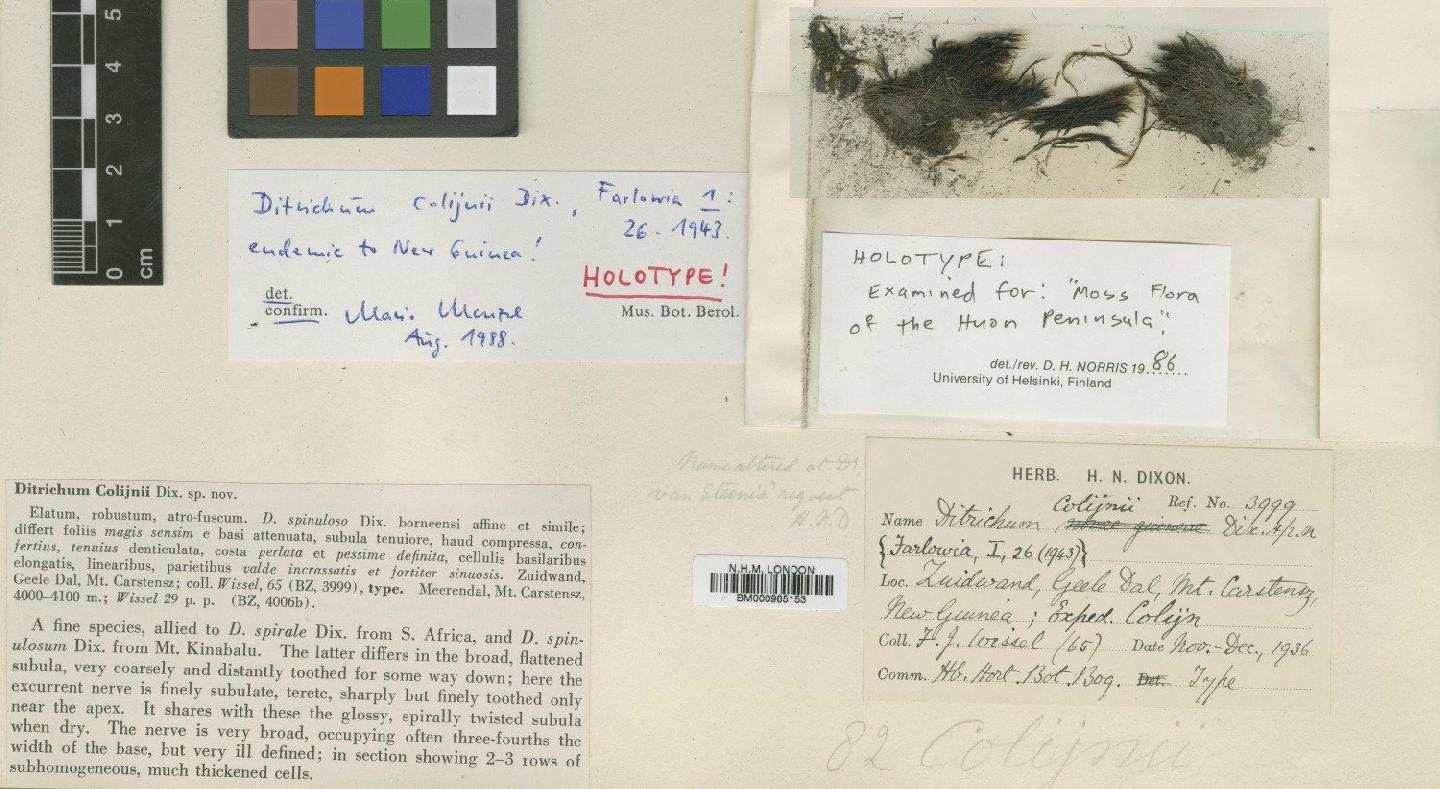 5
4
3
2
1
0
cm
Ditrichum Colijnii Dix., Farlowia 1:
26. 1943.
endemic to New Guinea!
HOLOTYPE!
det.
confirm.
Aug. 1988.
Mus. Bot. Berol.
HOLOTYPE:
Examined for: "Moss Flora
of the Huon Peninsula"
det./rev. D. H. NORRIS 1986
University of Helsinki, Finland
Ditrichum Colijnii Dix. sp. nov.
Elatum, robustum, atro-fuscum. D. spinuloso Dix. borneensi affine et simile;
differt foliis magis sensim e basi attenuata, subula tenuiore, haud compressa, con-
fertius, tenuius denticulata, costa perlata et pessime definita, cellulis basilaribus
elongatis, linearibus, parietibus valde incrassatis et fortiter sinuosis. Zuidwand,
Geele Dal, Mt. Carstensz; coll. Wissel, 65 (BZ, 3999), type. Meerendal, Mt. Carstensz,
4000–4100 m.; Wissel 29 p. p. (BZ, 4006b).
A fine species, allied to D. spirale Dix. from S. Africa, and D. spin-
ulosum Dix. from Mt. Kinabalu. The latter differs in the broad, flattened
subula, very coarsely and distantly toothed for some way down; here the
excurrent nerve is finely subulate, terete, sharply but finely toothed only
near the apex. It shares with these the glossy, spirally twisted subula
when dry. The nerve is very broad, occupying often three-fourths the
width of the base, but very ill defined; in section showing 2–3 rows of
subhomogeneous, much thickened cells.
Name altered at Dr.
van Steenis' request
H.N.D
N.H.M. LONDON
HERB. H. N. DIXON.
Ref. No. 3999
Colijnii
Name Ditrichum novae guineae Dix. sp. n
{Farlowia, I, 26 (1943)}
Loc. Zuidwand, Geele Dal, Mt. Carstensz,
New Guinea; Exped. Colijn
Coll. F. J. Wissel (65) Date Nov.-Dec., 1936
Comm. Hb. Hort. Bot. Bog. Det. Type
82 Colijnii